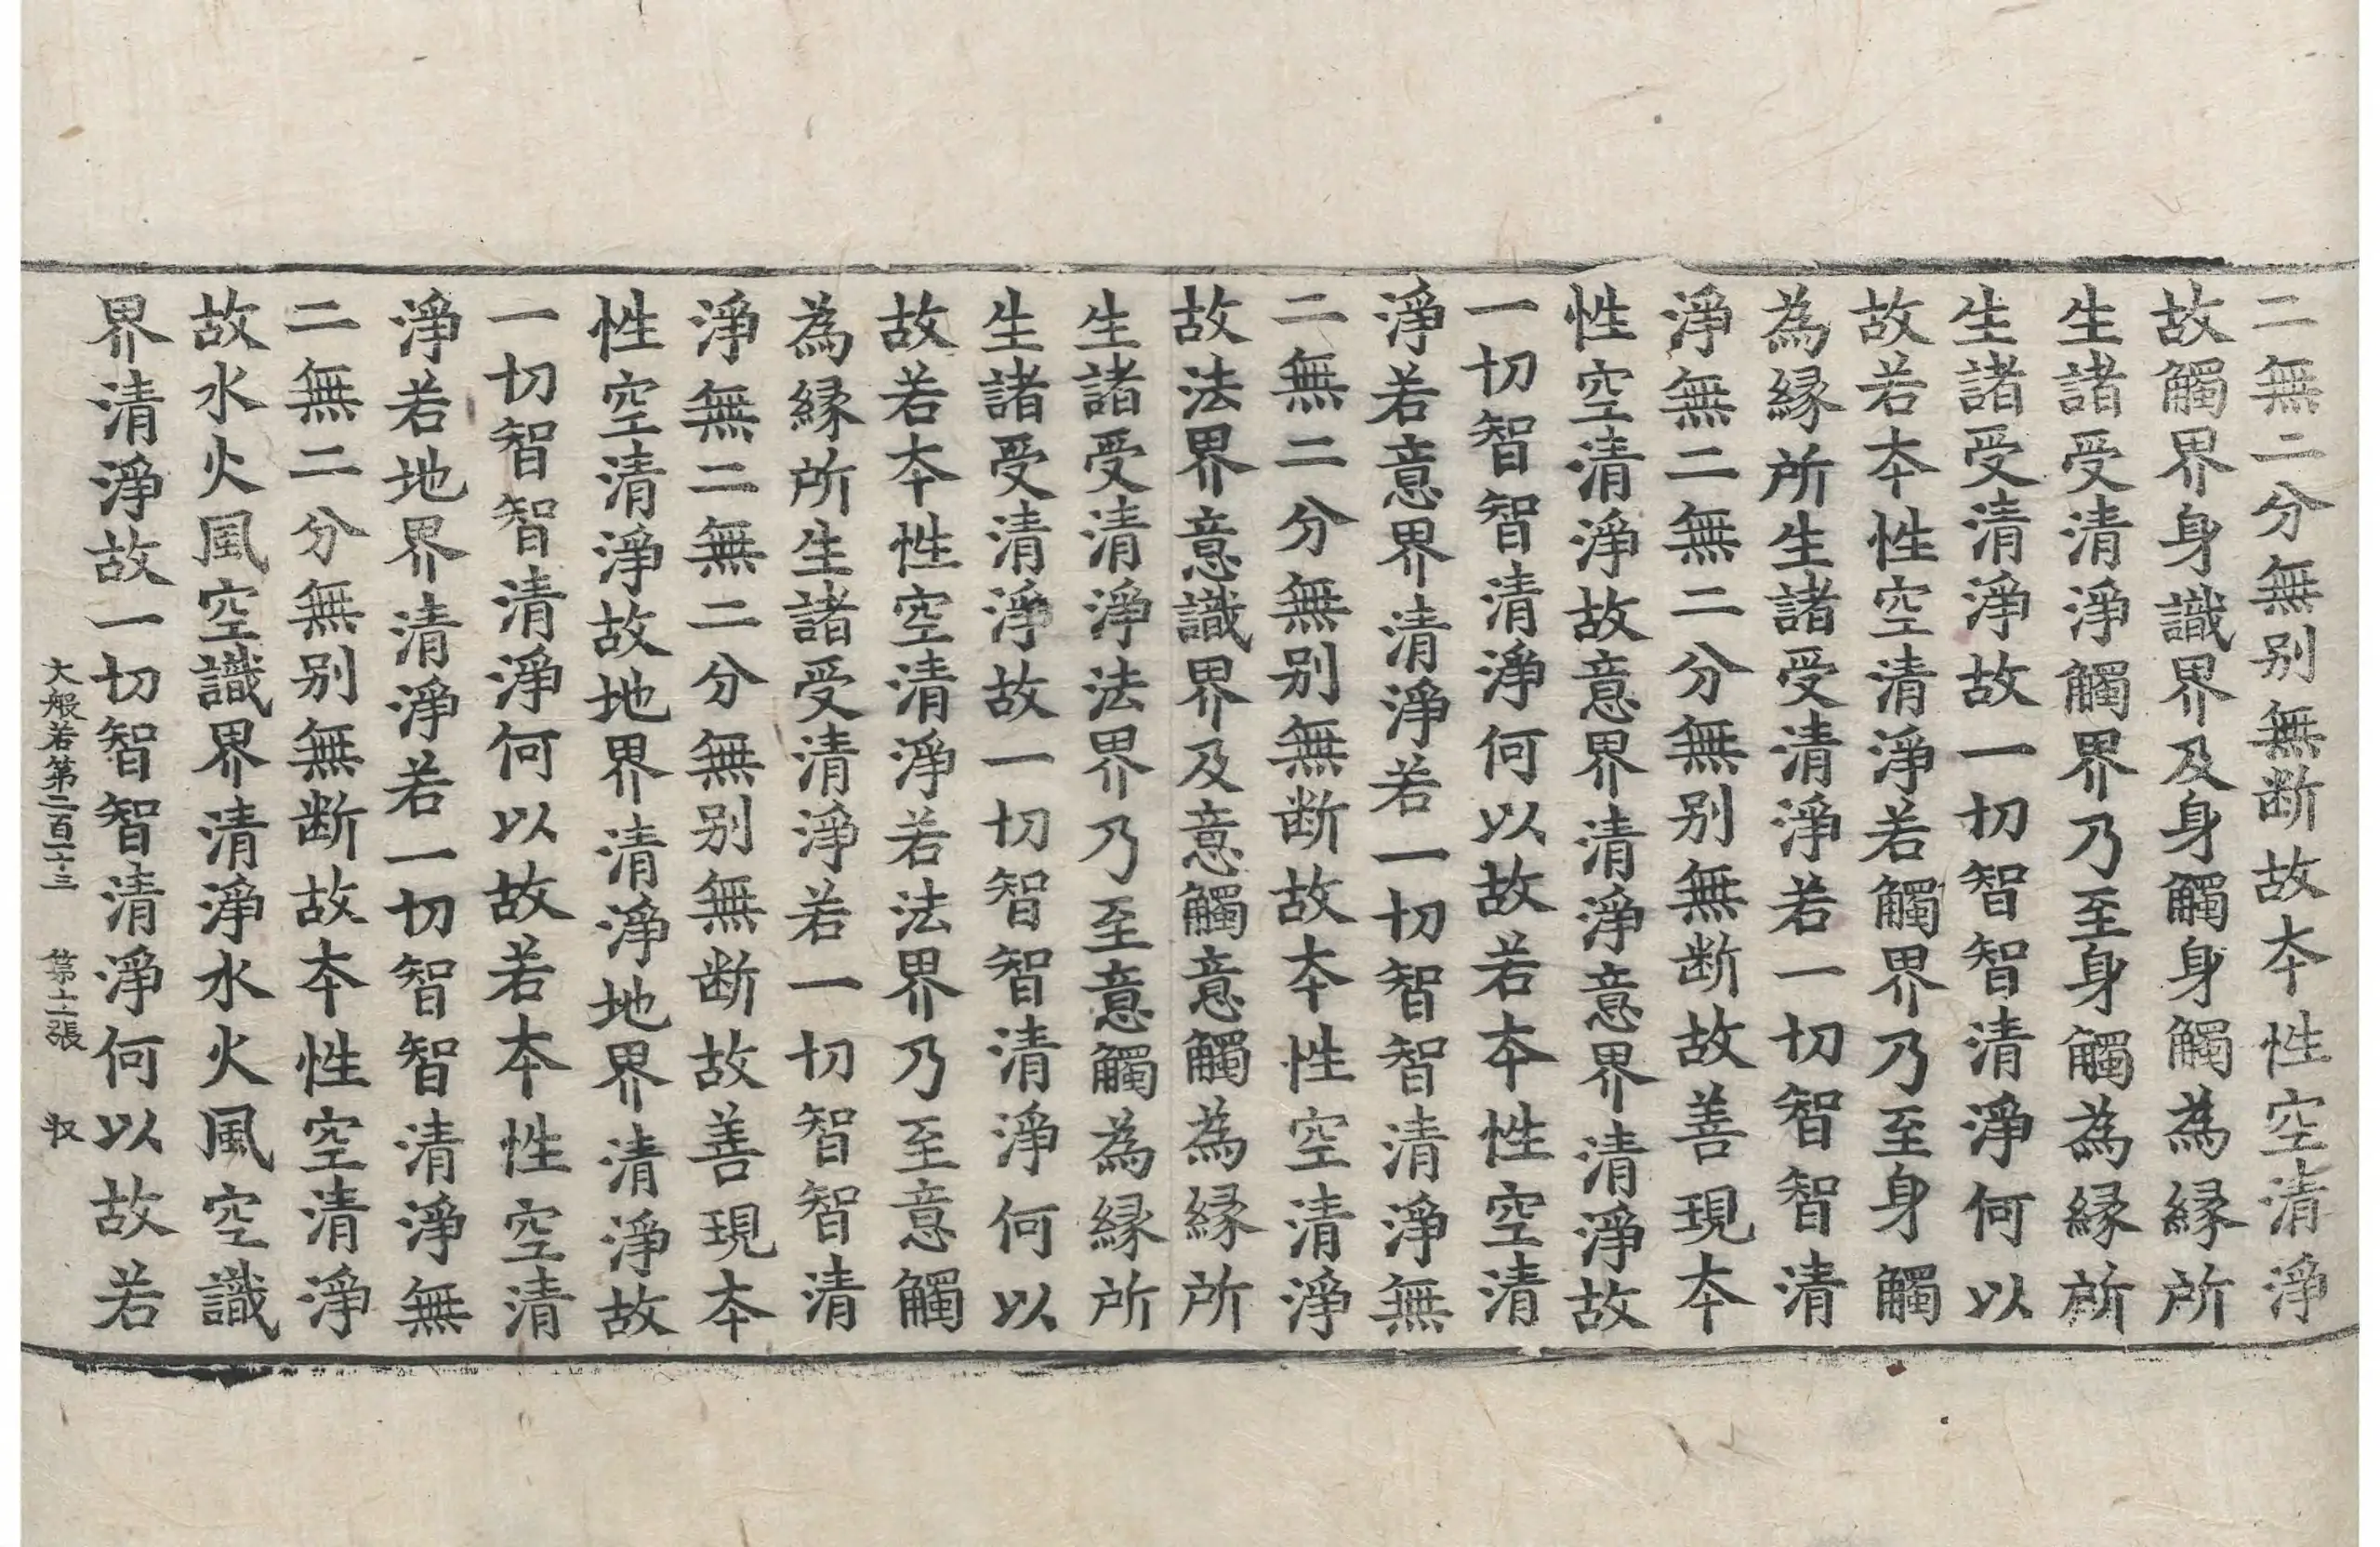 二無二分無别無断故夲性空清淨
故觸界身識界及身觸身觸為縁所
生諸受清淨觸界乃至身觸為縁所
生諸受清淨故一切智智清淨何以
故若夲性空清淨若觸界乃至身觸
為縁所生諸受清淨若一切智智清
淨無二無二分無别無断故善現夲
性空清淨故意界清淨意界清淨故
一切智智清淨何以故若夲性空清
淨若意界清淨若一切智智清淨無
二無二分無别無断故夲性空清淨
故法界意識界及意觸意觸為縁所
生諸受清淨法界乃至意觸為縁所
生諸受清淨故一切智智清淨何以
故若夲性空清淨若法界乃至意觸
為縁所生諸受清淨若一切智智清
淨無二無二分無别無断故善現夲
性空清淨故地界清淨地界清淨故
一切智智清淨何以故若夲性空清
淨若地界清淨若一切智智清淨無
二無二分無别無断故夲性空清淨
故水火風空識界清淨水火風空識
界清淨故一切智智清淨何以故若
大般若第二百一十三 第十二張 収